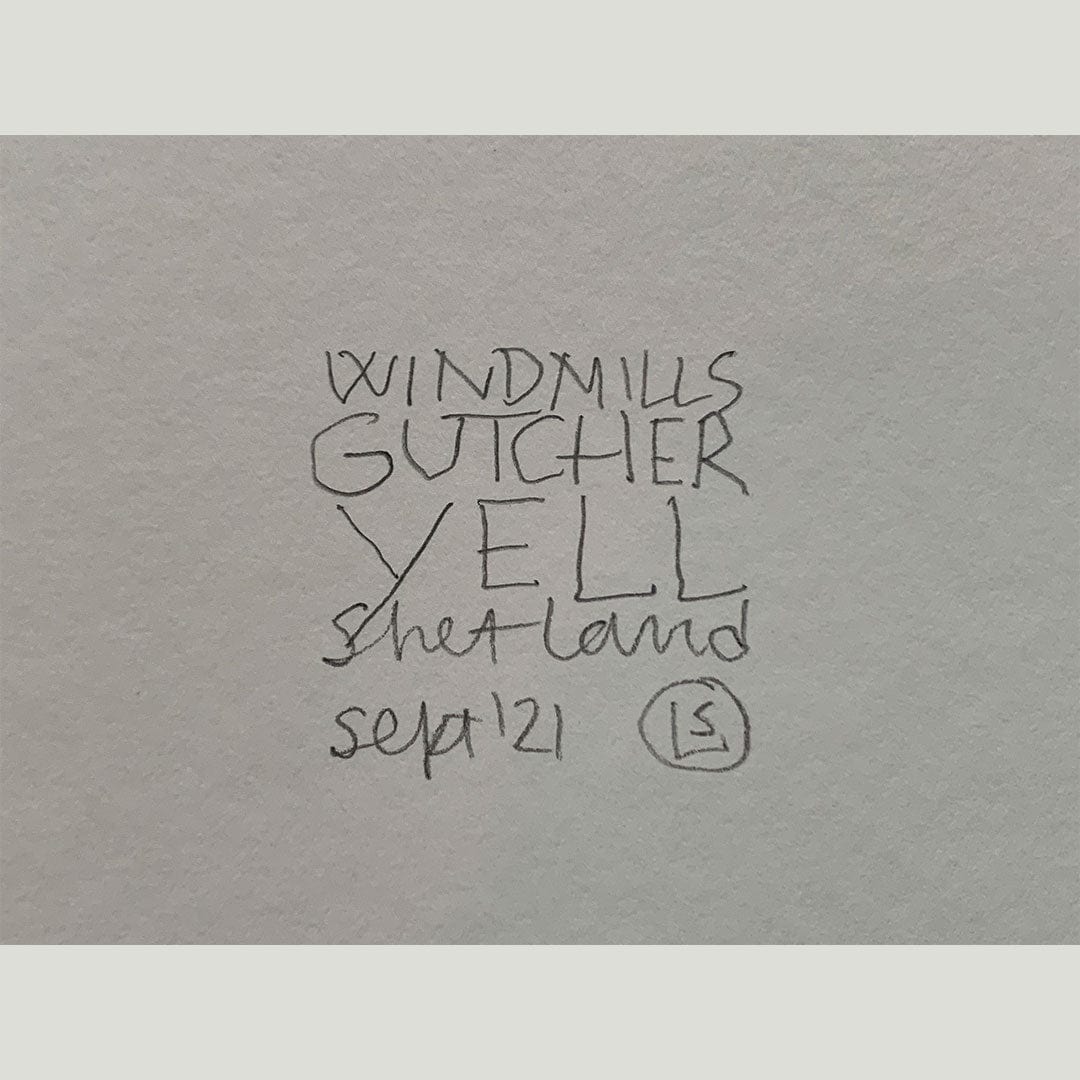 WINDMILLS
GUTCHER
YELL
Shetland
sept '21 LS